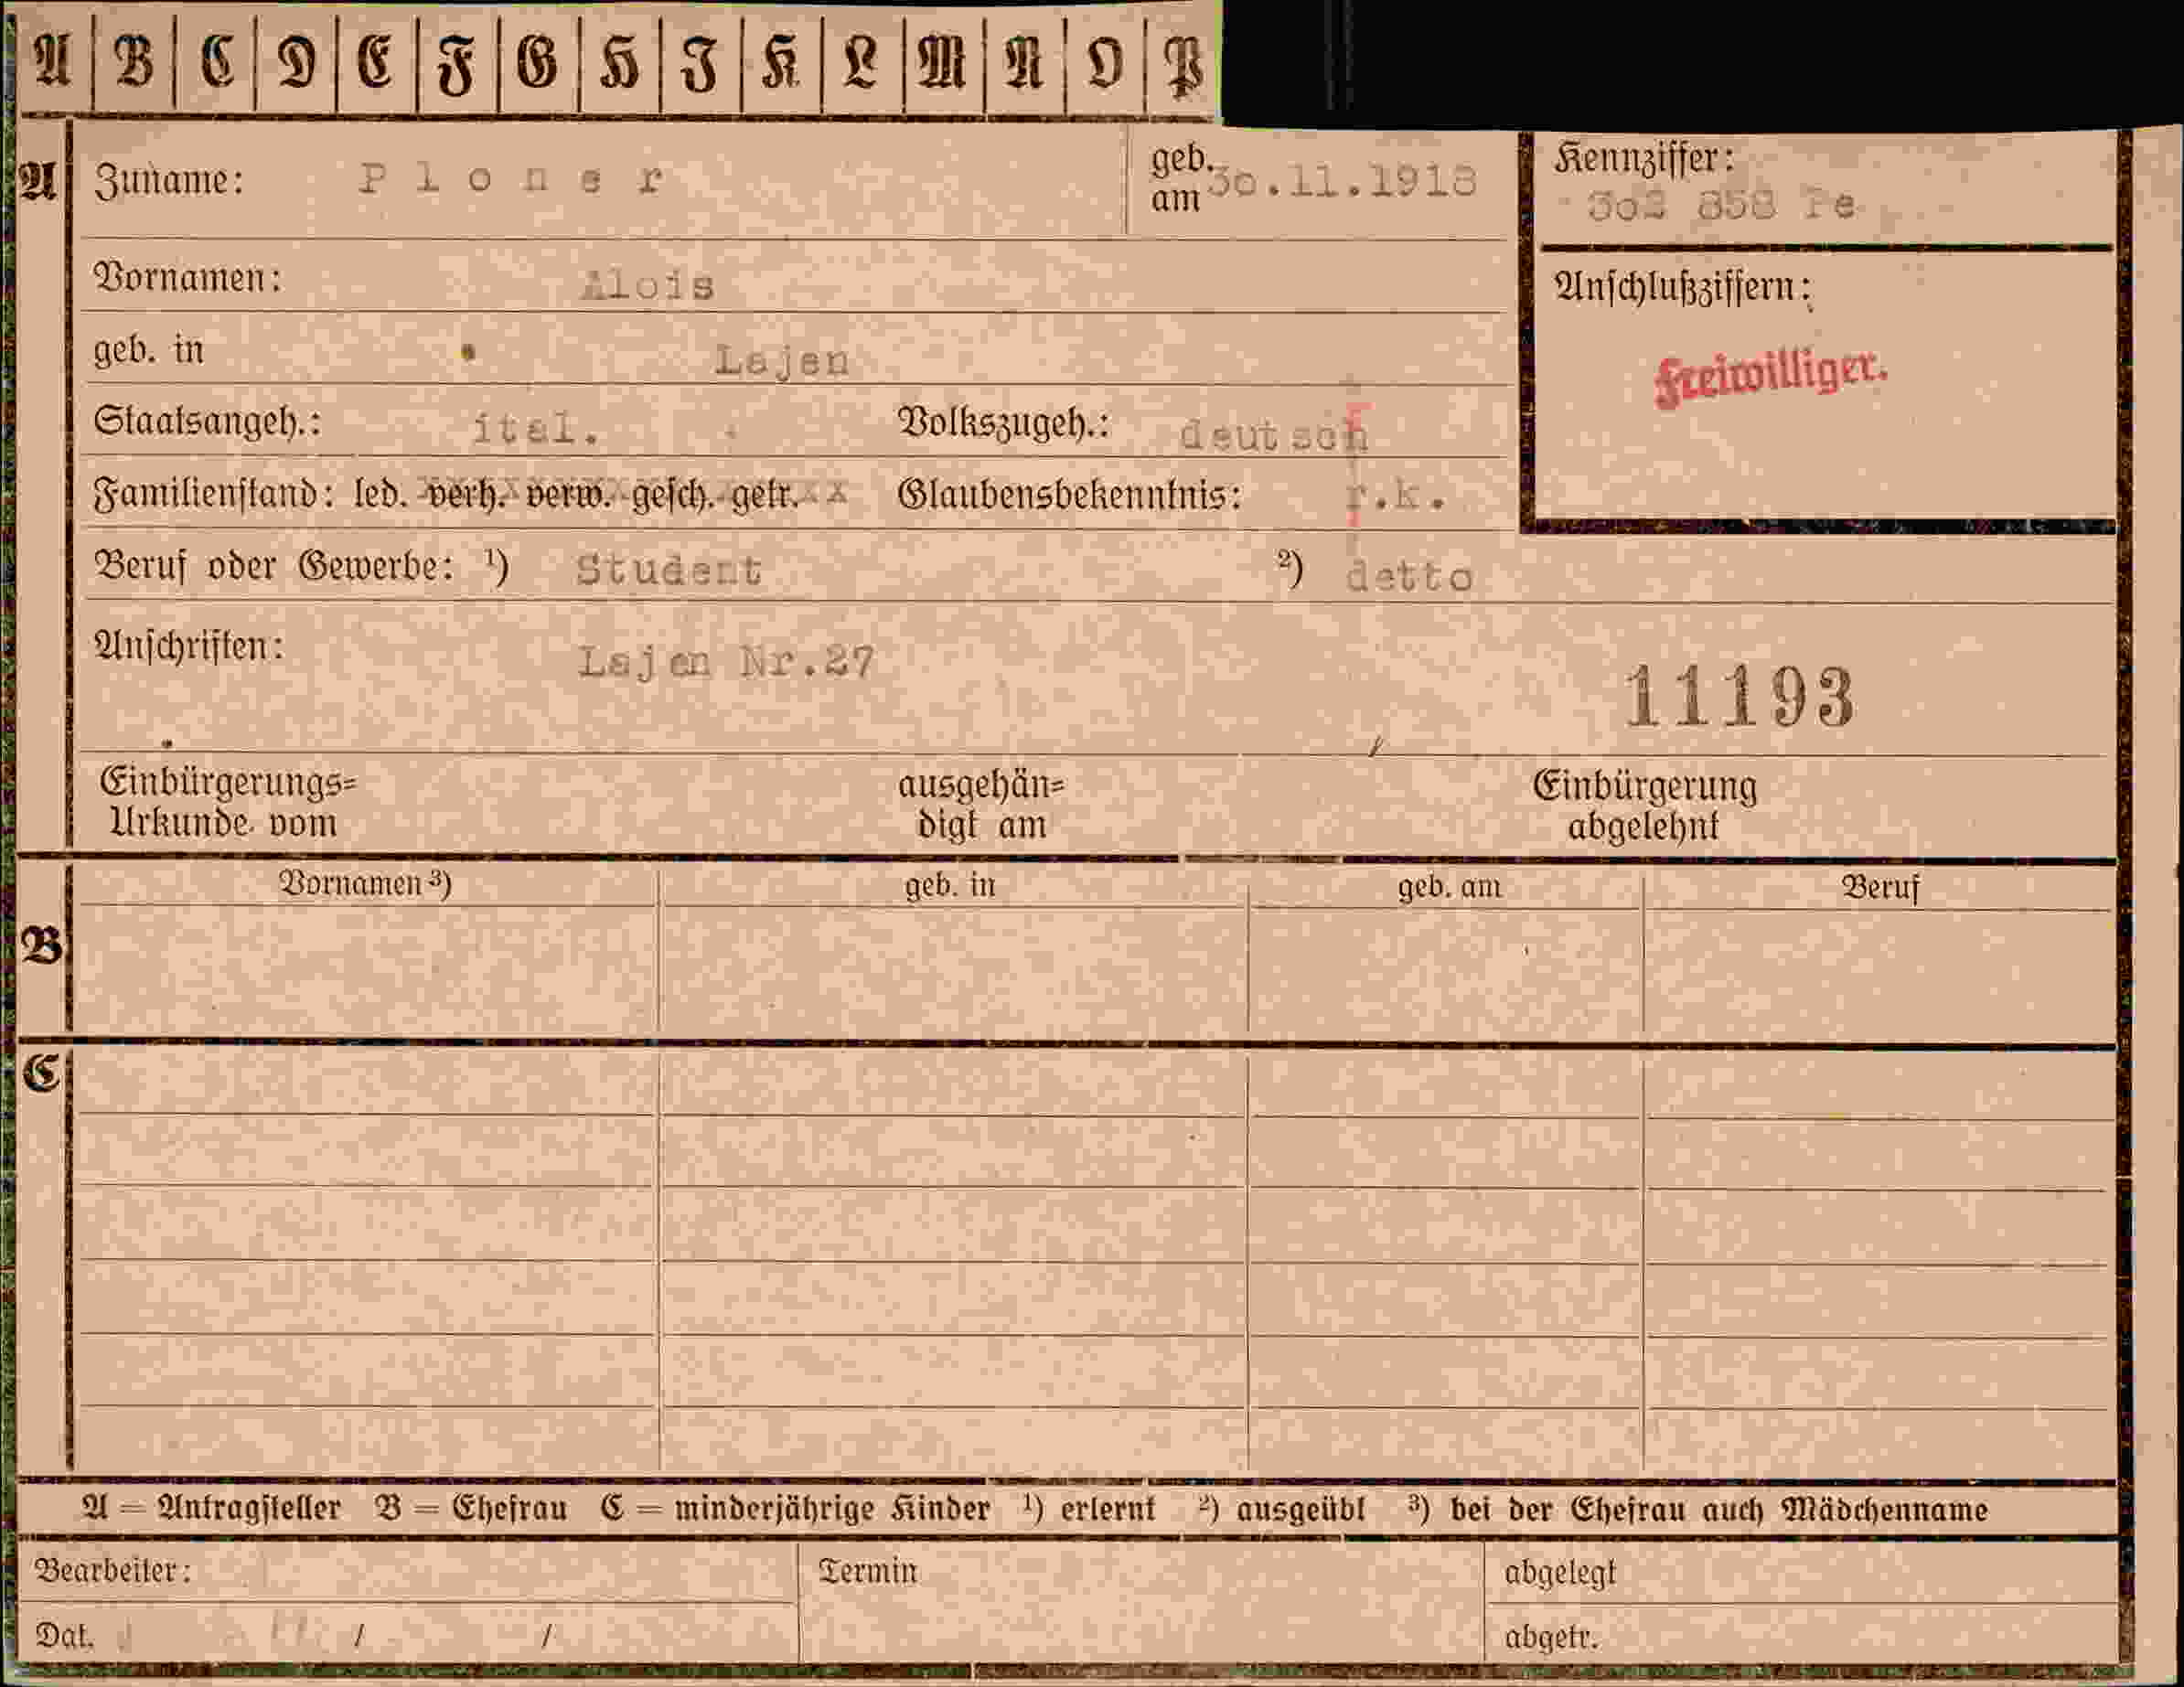 A B C D E F G H I K L M N O P
A
Zuname: Ploner
geb. am 30.11.1918
Kennziffer:
302 858 Pe
Vornamen: Alois
Anschlußziffern:
geb. in Lajen
Freiwilliger.
Staatsangeh.: ital. Volkszugeh.: deutsch
Familienstand: led. verh. verw. gesch. getr. Glaubensbekenntnis: r.k.
Beruf oder Gewerbe: ¹) Student ²) detto
Anschriften: Lajen Nr.27
11193
Einbürgerungs= ausgehän= Einbürgerung
Urkunde vom digt am abgelehnt
B
Vornamen ³) geb. in geb. am Beruf
C
A = Antragsteller B = Ehefrau C = minderjährige Kinder ¹) erlernt ²) ausgeübt ³) bei der Ehefrau auch Mädchenname
Bearbeiter: Termin abgelegt
Dat. / / abgetr.